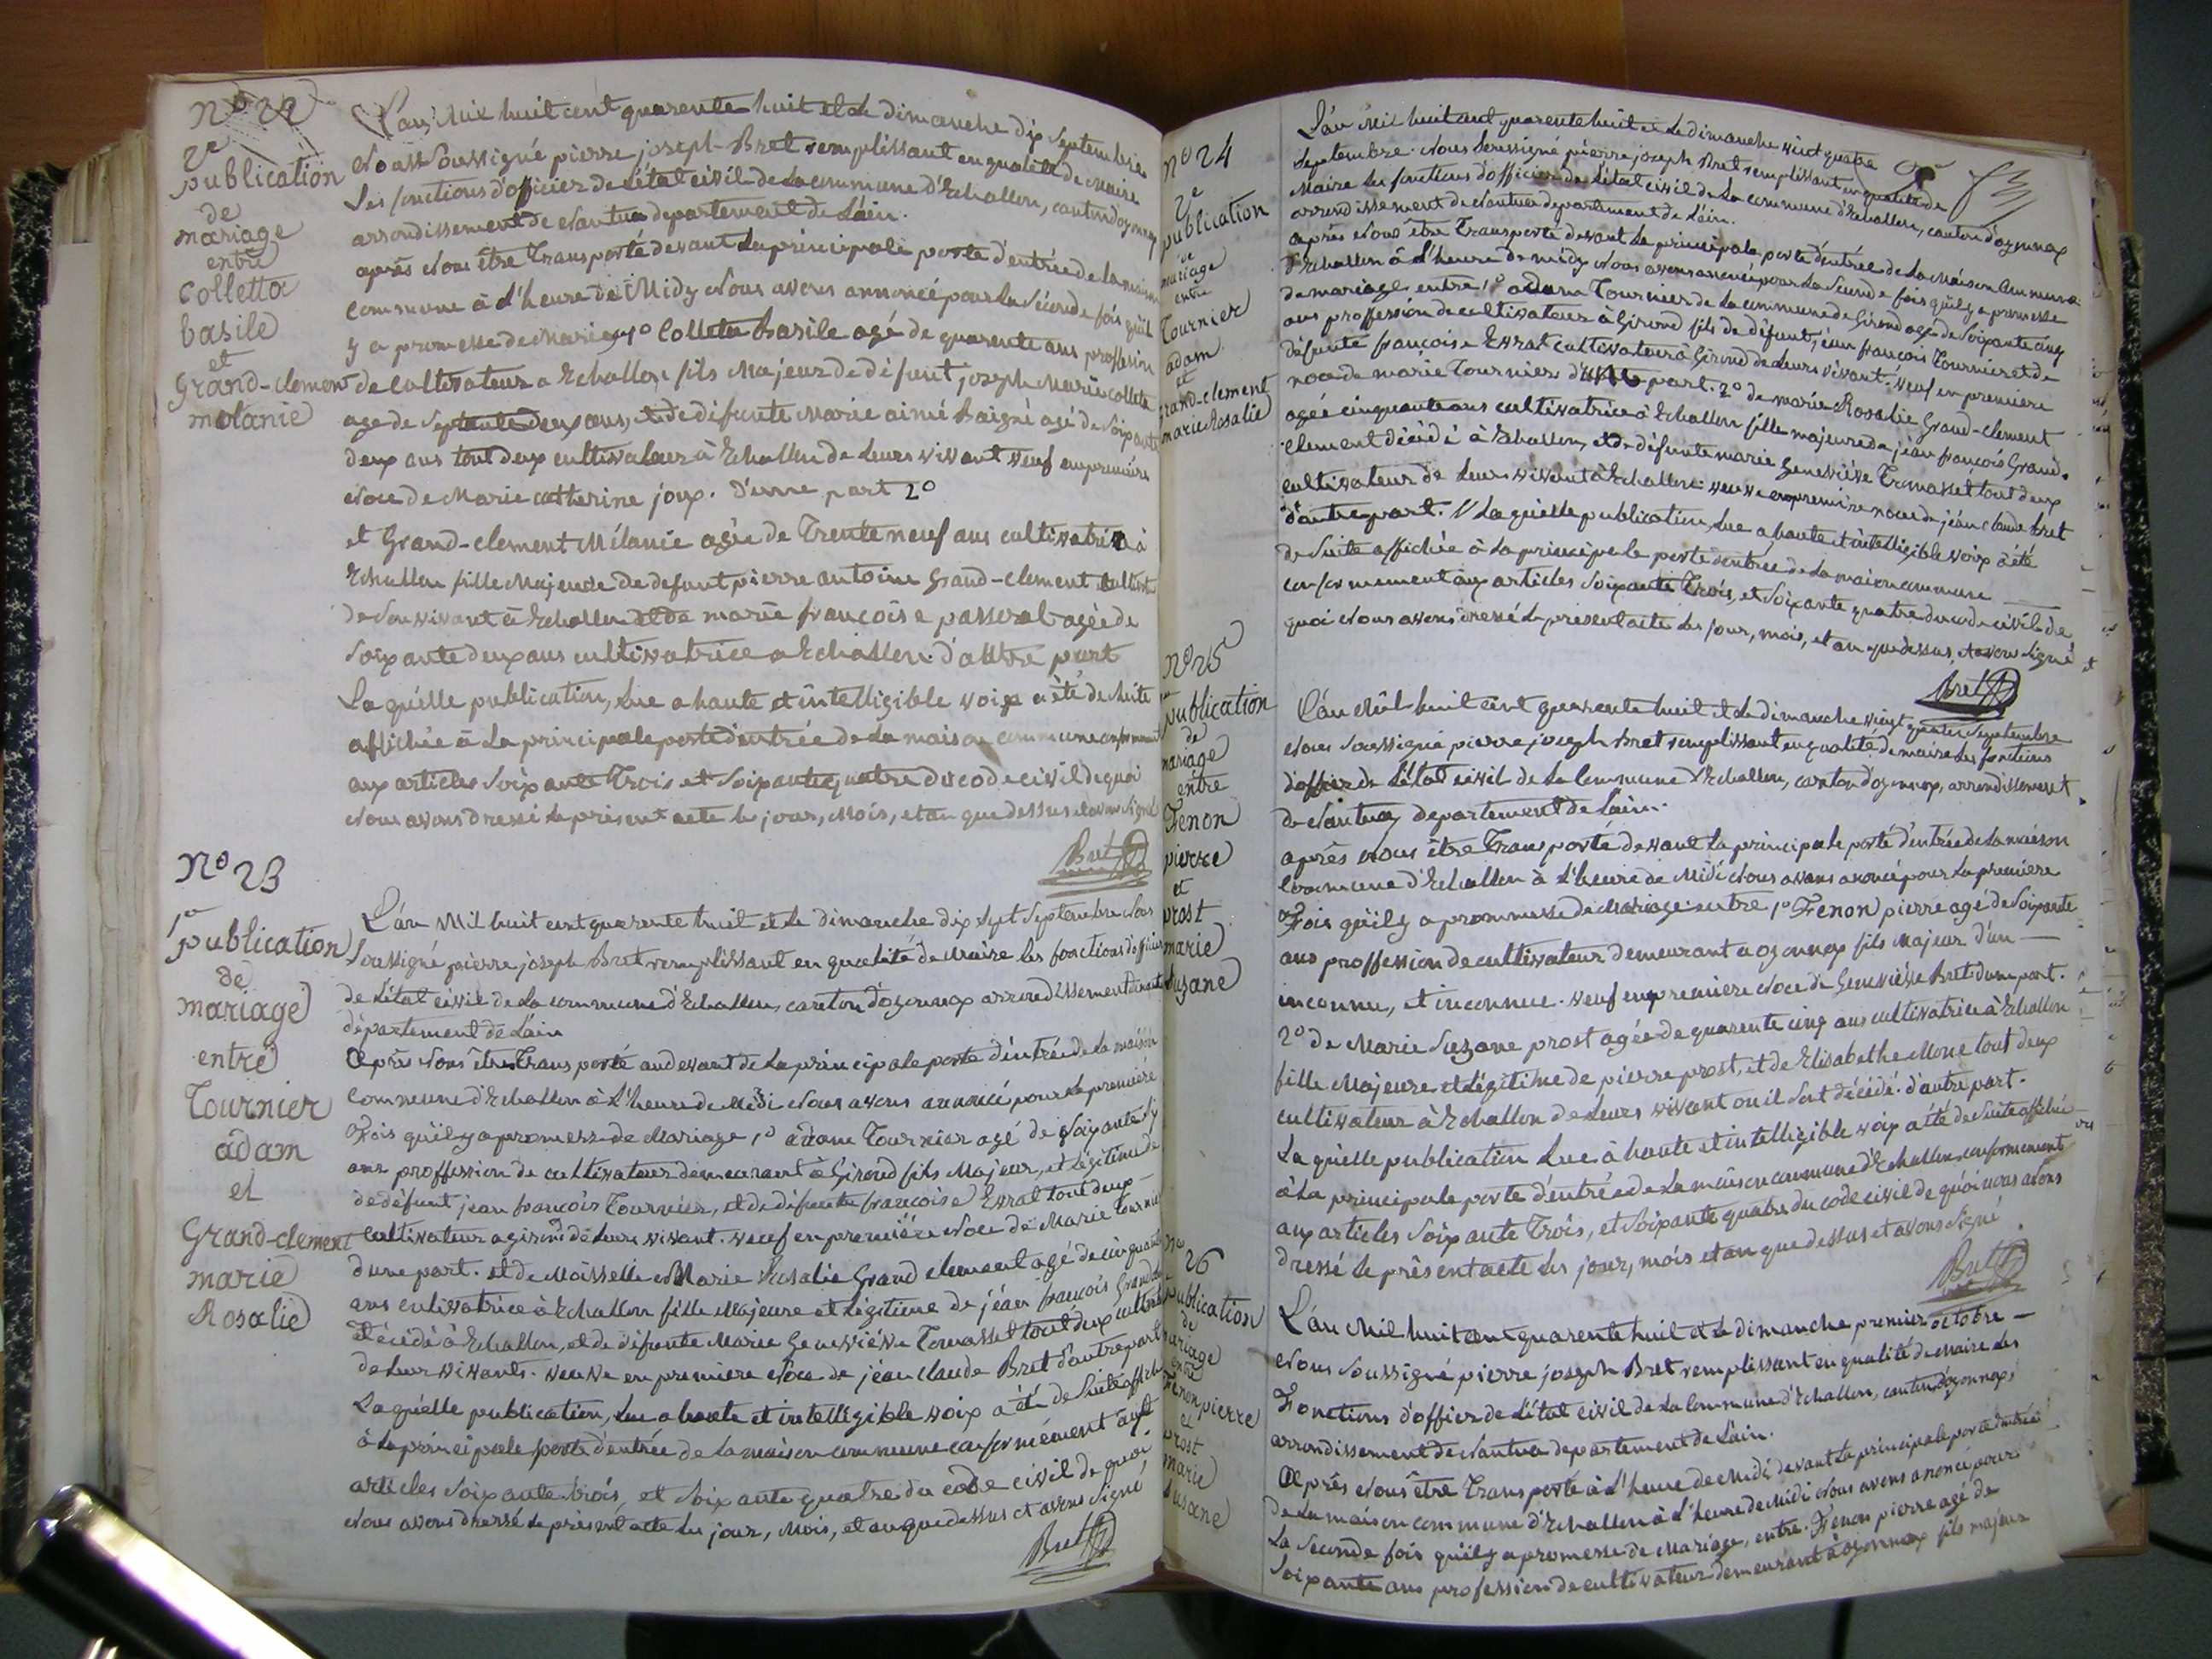 No 22
2e
publication
de
mariage
entre
Colletta
basile
et
Grand-clement
mélanie
L'an Mil huit cent quarente huit et le dimanche dix Septembre
Nous Soussigné pierre joseph Bret remplissant en qualité de Maire
Les fonctions d'officier de L'état civil de La commune d'Echallon, canton d'oyonnax
arrondissement de Nantua departement de L'ain.
après Nous être Transporté devant La principale porte d'entrée de la maison
Commune à L'heure de Midy Nous avons annoncé pour La Seconde fois qu'il
y a promesse de Mariage 1o Colletta basile agé de quarente ans proffession
de cultivateur a Echallon fils Majeur de défunt joseph Marie colleta
age de Septante deux ans, et de défunte Marie aimé Baigné agé de Soixante
deux ans tout deux cultivateur à Echallon de Leurs vivant veuf en premiere
Noce de Marie catherine joux. d'une part 2o
et Grand-clement Mélanie agée de Trente neuf ans cultivatrice à
Echallon fille Majeure de defunt pierre antoine Grand-clement
de Son vivant à Echallon et de marie françoise passerat agée de
Soixante deux ans cultivatrice a Echallon d'autre part
La quélle publication, Lue a haute et intelligible voix a été de Suite
affichée à La principale porte d'entrée de La maison commune conformement
aux articles Soixante Trois et Soixante quatre du code civil de quoi
Nous avons Dressé Le présent acte Les jour, Mois, et an que dessus et avons Signé
Bret
No 23
1re
publication
de
mariage
entre
Tournier
adam
et
Grand-clement
marie
Rosalie
L'an Mil huit cent quarente huit et le dimanche dix Sept Septembre Nous
Soussigné pierre joseph Bret remplissant en qualité de Maire les fonctions d'officier
de L'état civil de La commune d'Echallon, canton d'oyonnax arrondissement
département de L'ain
Après Nous être Transporté au devant de La principale porte d'entrée de La maison
Commune d'Echallon à L'heure de Midi Nous avons annoncé pour La première
Fois qu'il y a promesse de Mariage 1o adam Tournier agé de Soixante
ans proffession de cultivateur demeurant à Girond fils Majeur, et Légitime de
de défunt jean françois Tournier, et de défunte françoise Evrat tout deux
cultivateur a girond de Leurs vivant. veuf en première Noce de Marie Tournier
d'une part. et de Moisselle Marie Rosalie Grand clement agé de cinquante
ans cultivatrice à Echallon fille Majeure et Légitime de jéan françois Grand
décédé à Echallon, et de défunte Marie Genevièvve Tomasset tout deux
de Leur vivants. veuve en premiere Noce de jéan claude Bret d'autre part
La quélle publication, Lue a haute et intelligible voix a été de Suite affichée
à La principale porte d'entrée de La maison commune conformément aux
articles Soixante trois, et Soixante quatre du code civil de quoi
Nous avons dressé Le présent acte Les jour, Mois, et an que dessus et avons Signé
Bret
no 24
2e
publication
de
mariage
entre
Tournier
adam
et
Grand-clement
marie Rosalie
L'an Mil huit cent quarente huit et Le dimanche vint quatre
Septembre. Nous Soussigné pierre joseph Bret remplissant en qualité de
Maire Les fonctions d'officier de L'état civil de La commune d'Echallon, canton d'oyonnax
arrondissement de Nantua departement de L'ain.
après Nous être Transporté devant La principale porte d'entrée de La Maison Commune
d'Echallon à L'heure de midy Nous avons annoncé pour La Seconde fois qu'il y a promesse
de mariage entre, 1o adam Tournier de La commune de Girond agé de Soixante cinq
ans proffession de cultivateur à Girond fils de défunt, jéan françois Tournier et de
défunte françoise Evrat cultivateur à Girond de Leurs vivant. veuf en premiere
noce de marie Tournier d'une part. 2o de marie Rosalie Grand-clement
agée cinquante ans cultivatrice à Echallon fille majeure de jéan françois Grand.
clement décédé à Echallon, et de défunte marie Geneviéve Tomasset tout deux
cultivateur de Leurs vivant à Echallon veuve en premiere noce de jéan claude bret
d'autre part. // La quélle publication, Lue a haute et intelligible voix à été
de Suite affichée à La principale porte d'entrée de La maison commune
conformement aux articles Soixante Trois, et Soixante quatre du code civil de
quoi Nous avons dressé Le présent acte Les jour, mois, et an que dessus, et avons Signé
Bret
no 25
publication
de
mariage
entre
Fenon
pierre
et
prost
marie
Suzane
L'an Mil huit cent quarente huit et Le dimanche vingt quatre Septembre
Nous Soussigné pierre joseph Bret remplissant en qualité de maire Les fonctions
d'officier de L'état civil de La Commune d'Echallon, canton d'oyonnax, arrondissement
de Nantua departement de L'ain.
après nous être Transporté devant La principale porte d'entrée de La maison
Commune d'Echallon à L'heure de Midi Nous avons anoncé pour La premiere
Fois qu'il y a prommesse de Mariage entre 1o Fenon pierre agé de Soixante
ans proffession de cultivateur demeurant a oyonnax fils Majeur d'un
inconnu, et inconnue. veuf en premiere Noce de Geneviève Bret d'une part.
2o de Marie Suzane prost agée de quarente cinq ans cultivatrice à Echallon
fille Majeure et Légitime de pierre prost, et de Elisabethe Mone tout deux
cultivateur à Echallon de Leurs vivant ou il Sont décédé. d'autre part.
La quélle publication Lue à haute et intelligible voix a été de Suite affichée
à La principale porte d'entrée de La maison commune d'Echallon, conformement
aux articles Soixante Trois, et Soixante quatre du code civil de quoi nous avons
dressé Le présent acte Les jour, mois et an que dessus et avons Signé
Bret
no 26
publication
de
mariage
entre
Fenon pierre
et
prost
marie
Susane
L'an Mil huit cent quarente huit et Le dimanche premier octobre
Nous Soussigné pierre joseph Bret remplissant en qualité de Maire Les
Fonctions d'officier de L'état civil de La Commune d'Echallon, canton d'oyonnax,
arrondissement de Nantua departement de L'ain.
Après Nous être Transporté à L'heure de Midi devant La principale porte d'entrée
de La maison commune d'Echallon à L'heure de Midi Nous avons anoncé pour
La Seconde fois qu'il y a promesse de Mariage, entre. Fenon pierre agé de
Soixante ans profession de cultivateur demeurant à oyonnax fils majeur